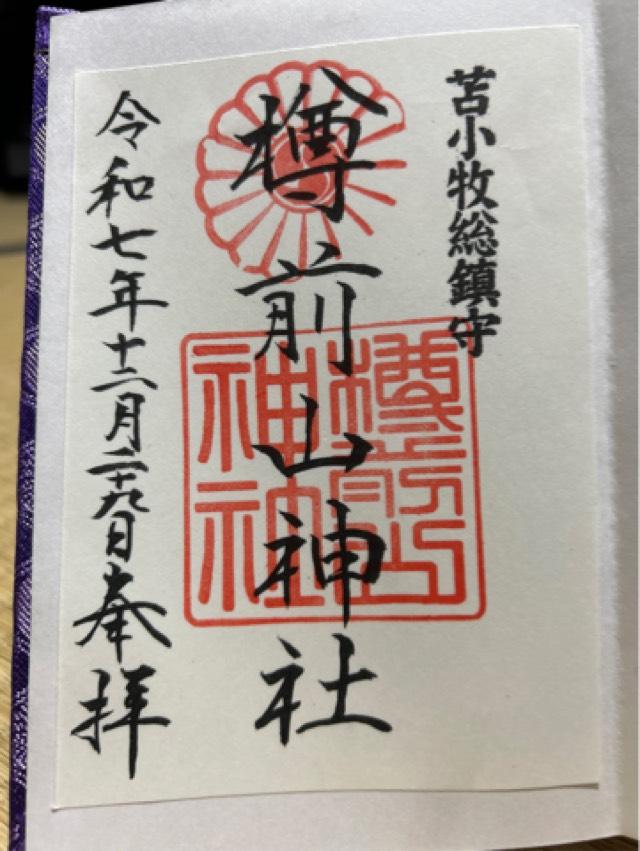 苫小牧総鎮守
樽前山神社
令和七年十二月二十九日奉拝
樽前山神社